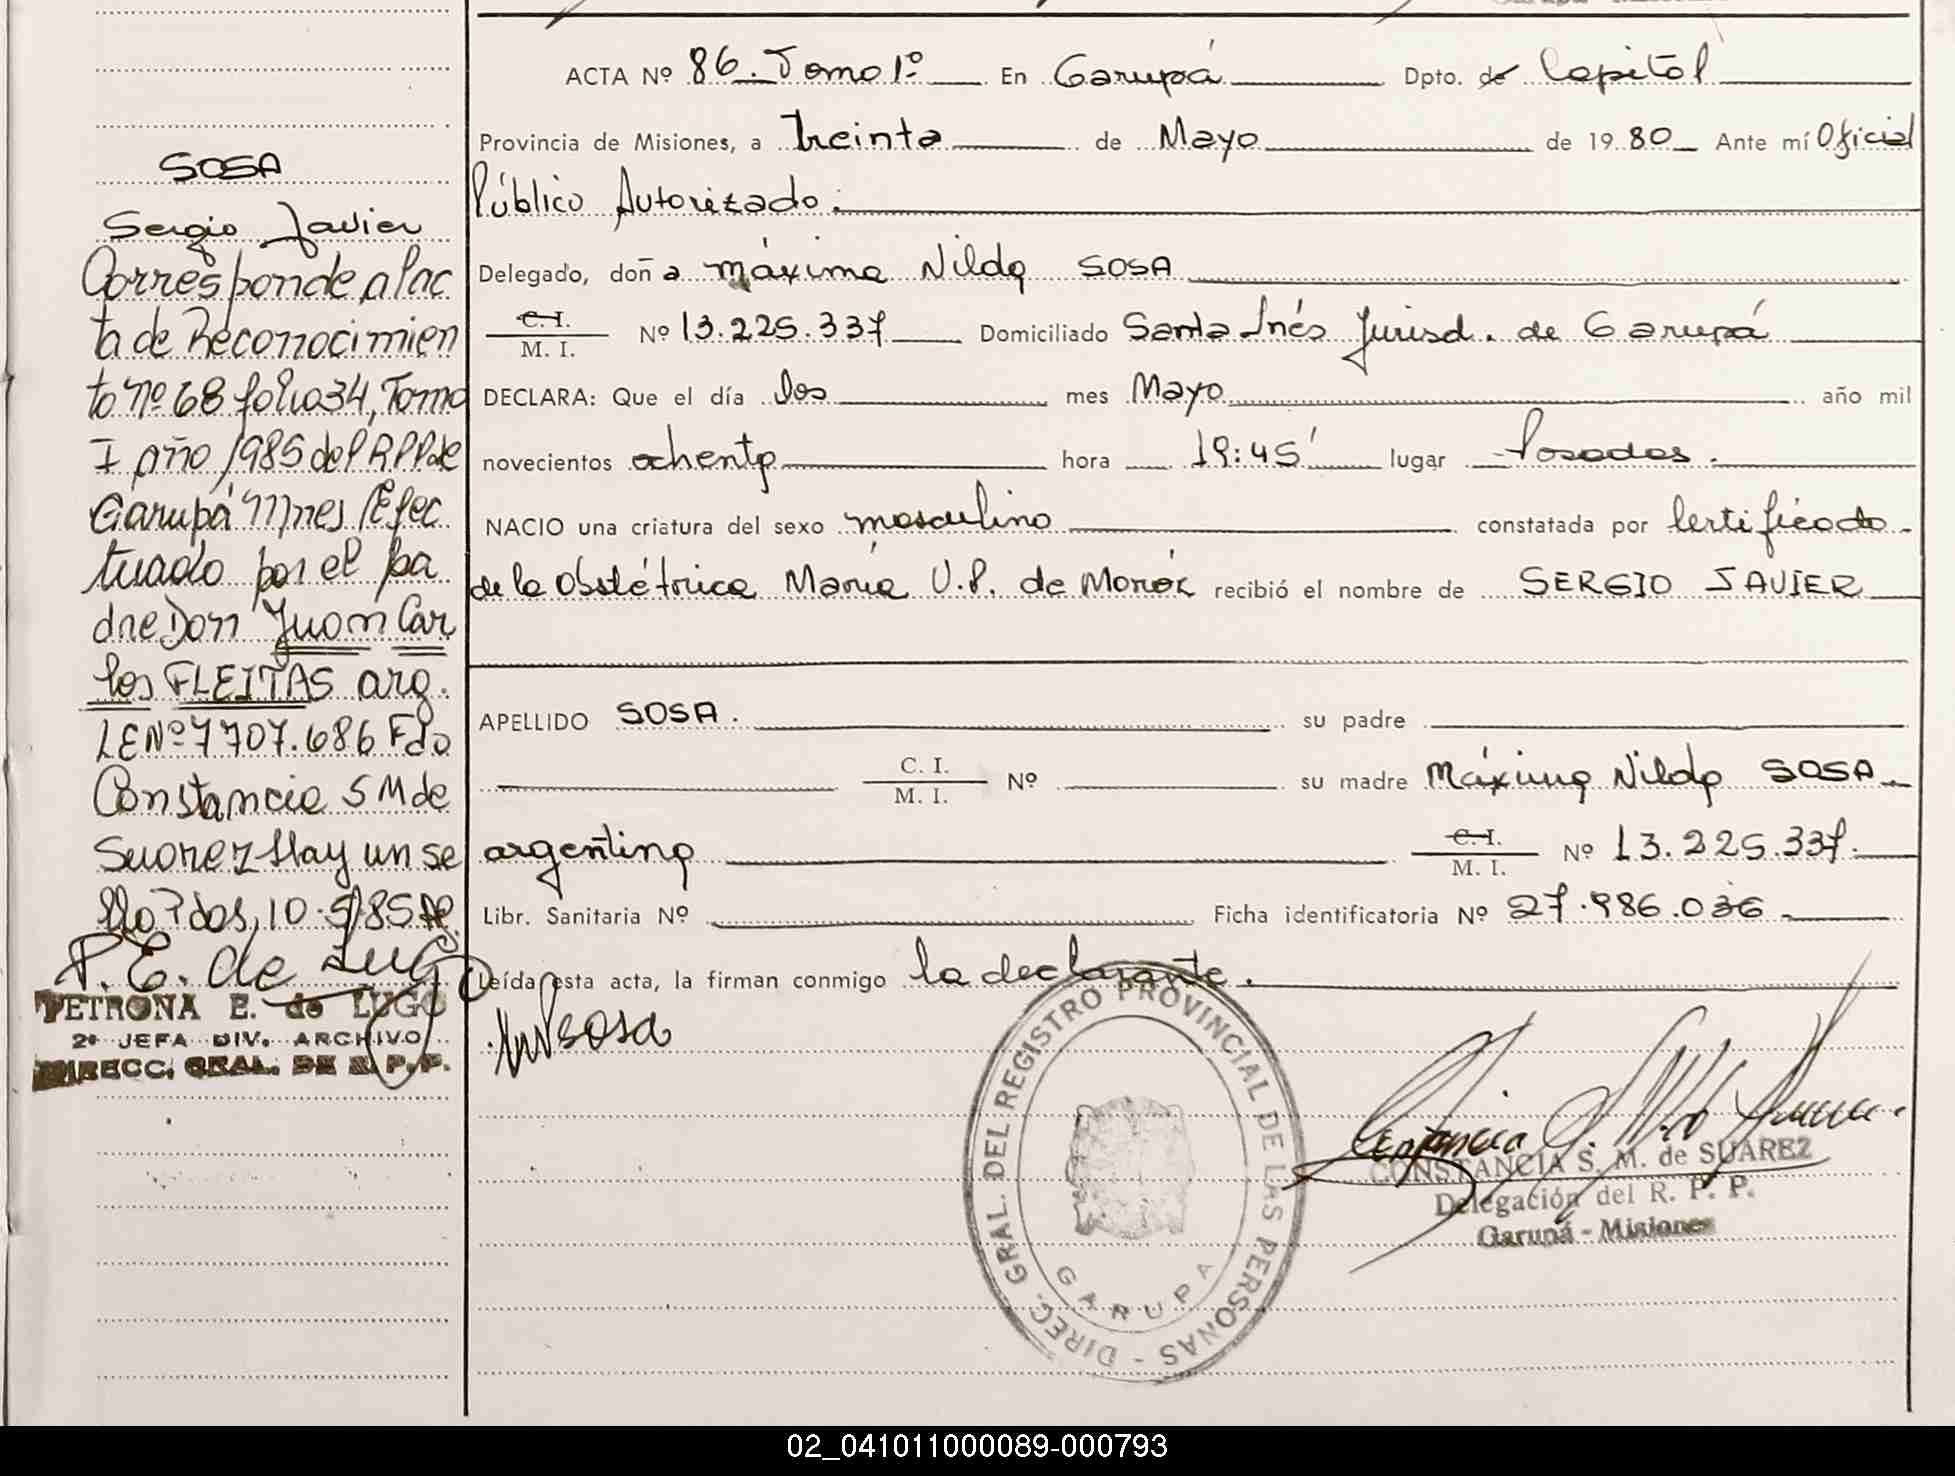 SOSA
Sergio Javier
Corresponde al ac
ta de Reconocimien
to nº 68 folio 34, Tomo
I año 1985 del RPP de
Garupá Mnes Efec
tuado por el pa
dre Don Juan Car
los FLEITAS arg.
LE Nº 7707.686 Fdo
Constancia S M de
Suarez Hay un se
llo Pdas, 10.5/85
P. E. de Lugo
PETRONA E. de LUGO
2ª JEFA DIV. ARCHIVO
DIRECC. GRAL. DE R. P. P.
ACTA Nº 86. Tomo 1º En Garupá Dpto. de Capital
Provincia de Misiones, a treinta de Mayo de 1980 Ante mí Oficial
Público Autorizado.
Delegado, doña máxima Nilda SOSA
C. I.
M. I. Nº 13.225.337 Domiciliado Santa Inés Jurisd. de Garupá
DECLARA: Que el día dos mes Mayo año mil
novecientos ochenta hora 19:45' lugar Posadas.
NACIO una criatura del sexo masculino constatada por Certificado
de la Obstétrica María U.P. de recibió el nombre de SERGIO JAVIER
APELLIDO SOSA. su padre
C. I.
M. I. Nº su madre Máxima Nilda SOSA
argentina C. I.
M. I. Nº 13.225.337.
Libr. Sanitaria Nº Ficha identificatoria Nº 27.986.036
Leída esta acta, la firman conmigo la declarante.
Sosa
DIREC. GRAL. DEL REGISTRO PROVINCIAL DE LAS PERSONAS -
GARUPA
CONSTANCIA S. M. de SUAREZ
Delegación del R. P. P.
Garupá - Misiones
02_041011000089-000793